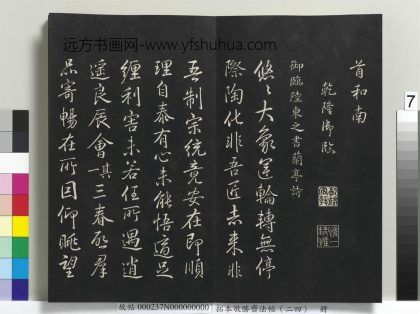 远方书画网-www.yfshuhua.com
首和南
乾隆御臨
御臨陸柬之書蘭亭詩
悠悠大象運輪轉無停
際陶化非吾匠去來非
吾制宗統竟安在即順
理自泰有心未能悟適足
纏利害未若任所遇逍
遙良辰會 其三春啟群
品寄暢在所因仰眺望
7
故帖 000237N000000000 拓本敬勝齋法帖（二四） 冊